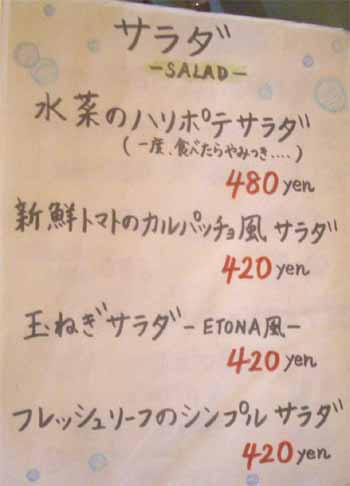 サラダ
-SALAD-
水菜のハリポテサラダ
(一度、食べたらやみつき....)
480 yen
新鮮トマトのカルパッチョ風 サラダ
420 yen
玉ねぎサラダ -ETONA風-
420 yen
フレッシュリーフのシンプル サラダ
420 yen